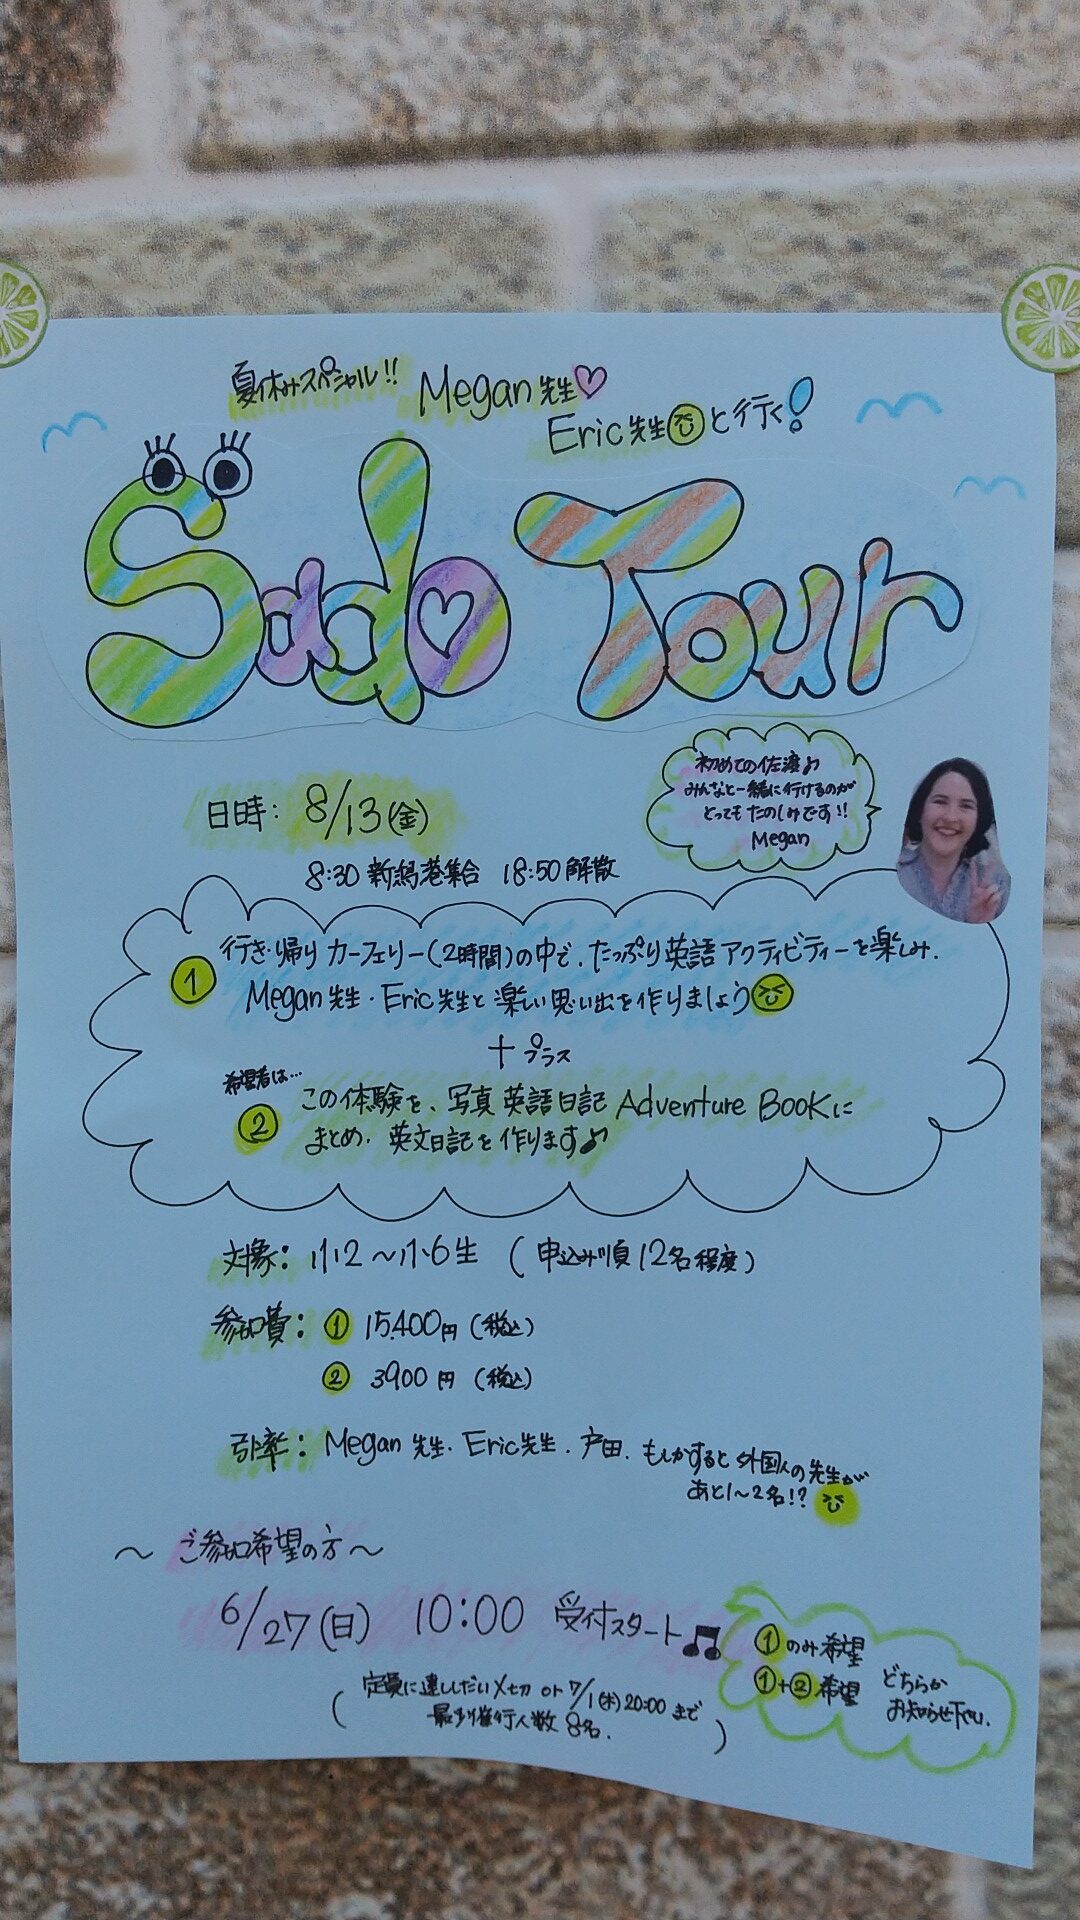 夏休みスペシャル!! Megan先生♡
Eric先生と行く!
Sado Tour
初めての佐渡♪
みんなと一緒に行けるのが
とってもたのしみです!!
Megan
日時: 8/13(金)
8:30 新潟港集合 18:50 解散
① 行き・帰り カーフェリー(2時間)の中で、たっぷり英語アクティビティーを楽しみ、
Megan先生・Eric先生と楽しい思い出を作りましょう
+プラス
希望者は…
② この体験を、写真英語日記 Adventure BooKに
まとめ、英文日記を作ります♪
対象: 小2〜小6生 (申込み順12名程度)
参加費: ① 15,400円(税込)
② 3900円(税込)
引率: Megan先生・Eric先生・戸田、もしかすると外国人の先生が
あと1〜2名!?
〜 ご参加希望の方 〜
6/27(日) 10:00 受付スタート♫
(定員に達ししだい〆切 or 7/1(木)20:00まで
最少催行人数 8名.)
①のみ希望
①+②希望
どちらか
お知らせ下さい.